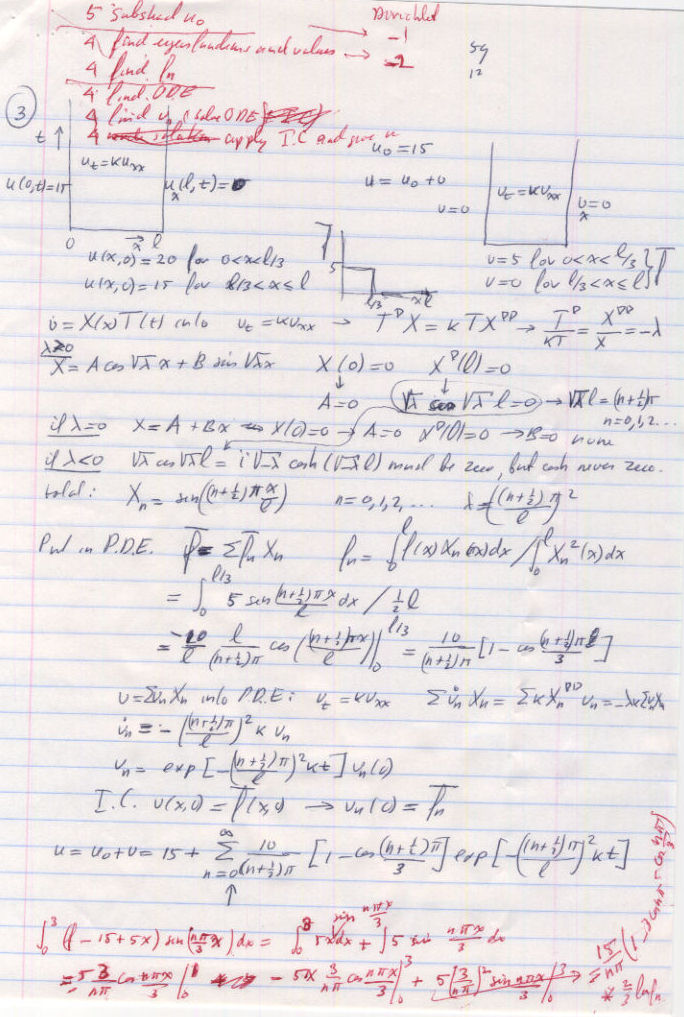 5 Subtract u₀
4 find eigenfunctions and values
4 find fₙ
4 find ODE
4 find vₙ (solve ODE)
4 apply I.C and give u
Dirichlet
-1
-2
59
12
③
t ↑
u_t = κu_xx
u(0,t)=15
u_x(l,t)=0
0 → x l
u(x,0) = 20 for 0<x<l/3
u(x,0) = 15 for l/3<x≤l
u₀ = 15
u = u₀ + v
v=0
v_t = κv_xx
v_x=0
f
5
l/3 x l
v=5 for 0<x<l/3
v=0 for l/3<x≤l } f
v = X(x)T(t) into v_t = κv_xx → T'X = κTX'' → T'/κT = X''/X = -λ
λ>0
X = A cos √λ x + B sin √λ x X(0)=0 X'(l)=0
↓ ↓
A=0 √λ cos √λ l=0 → √λ l = (n+½)π
n=0,1,2...
if λ=0 X = A + Bx X(0)=0 → A=0 X'(l)=0 → B=0 none
if λ<0 √λ cos √λ l = i√-λ cosh(√-λ l) must be zero, but cosh never zero.
total: Xₙ = sin((n+½)πx/l) n=0,1,2,... λ = ((n+½)π/l)²
Put in P.D.E. f = Σfₙ Xₙ fₙ = ∫₀^l f(x)Xₙ(x)dx / ∫₀^l Xₙ²(x)dx
= ∫₀^{l/3} 5 sin (n+½)πx/l dx / ½l
= -10/l l/(n+½)π cos((n+½)πx/l)|₀^{l/3} = 10/(n+½)π [1 - cos (n+½)π/3]
v=ΣvₙXₙ into P.D.E: v_t = κv_xx Σv̇ₙXₙ = ΣκXₙ''vₙ = -λκΣvₙXₙ
v̇ₙ = -((n+½)π/l)² κ vₙ
vₙ = exp[-((n+½)π/l)²κt] vₙ(0)
I.C. v(x,0) = f(x,0) → vₙ(0) = fₙ
u = u₀+v = 15 + Σ_{n=0}^∞ 10/(n+½)π [1-cos (n+½)π/3] exp[-((n+½)π/l)²κt]
↑
∫₀³ (f - 15+5x) sin(nπ/3 x) dx = ∫₀³ 5x dx sin nπx/3 + ∫5 sin nπx/3 dx
= -5 3/nπ cos nπx/3 |₀¹ - 5x 3/nπ cos nπx/3 |₀³ + 5(3/nπ)² sin nπx/3 |₀³ →